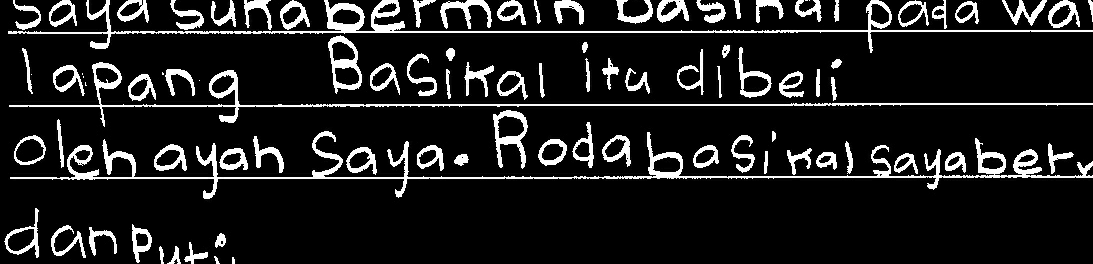 saya suka bermain basikal pada
lapang Basikal itu dibeli
oleh ayah saya. Roda basikal saya
dan puti